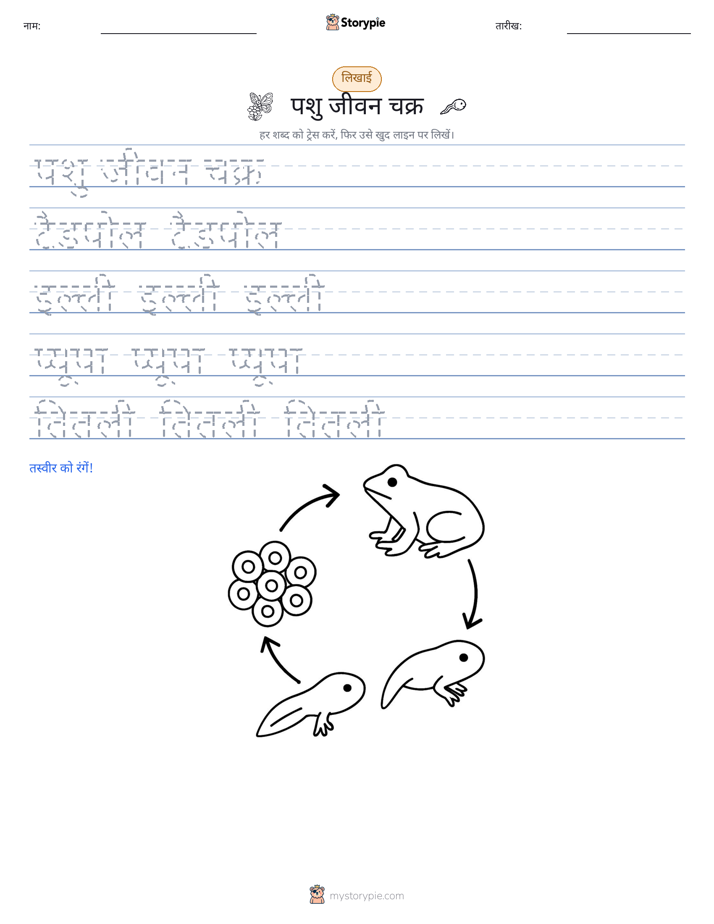 नाम: Storypie तारीख:
लिखाई
पशु जीवन चक्र
हर शब्द को ट्रेस करें, फिर उसे खुद लाइन पर लिखें।
पशु जीवन चक्र
टैडपोल टैडपोल
इल्ली इल्ली इल्ली
प्यूपा प्यूपा प्यूपा
तितली तितली तितली
तस्वीर को रंगें!
mystorypie.com